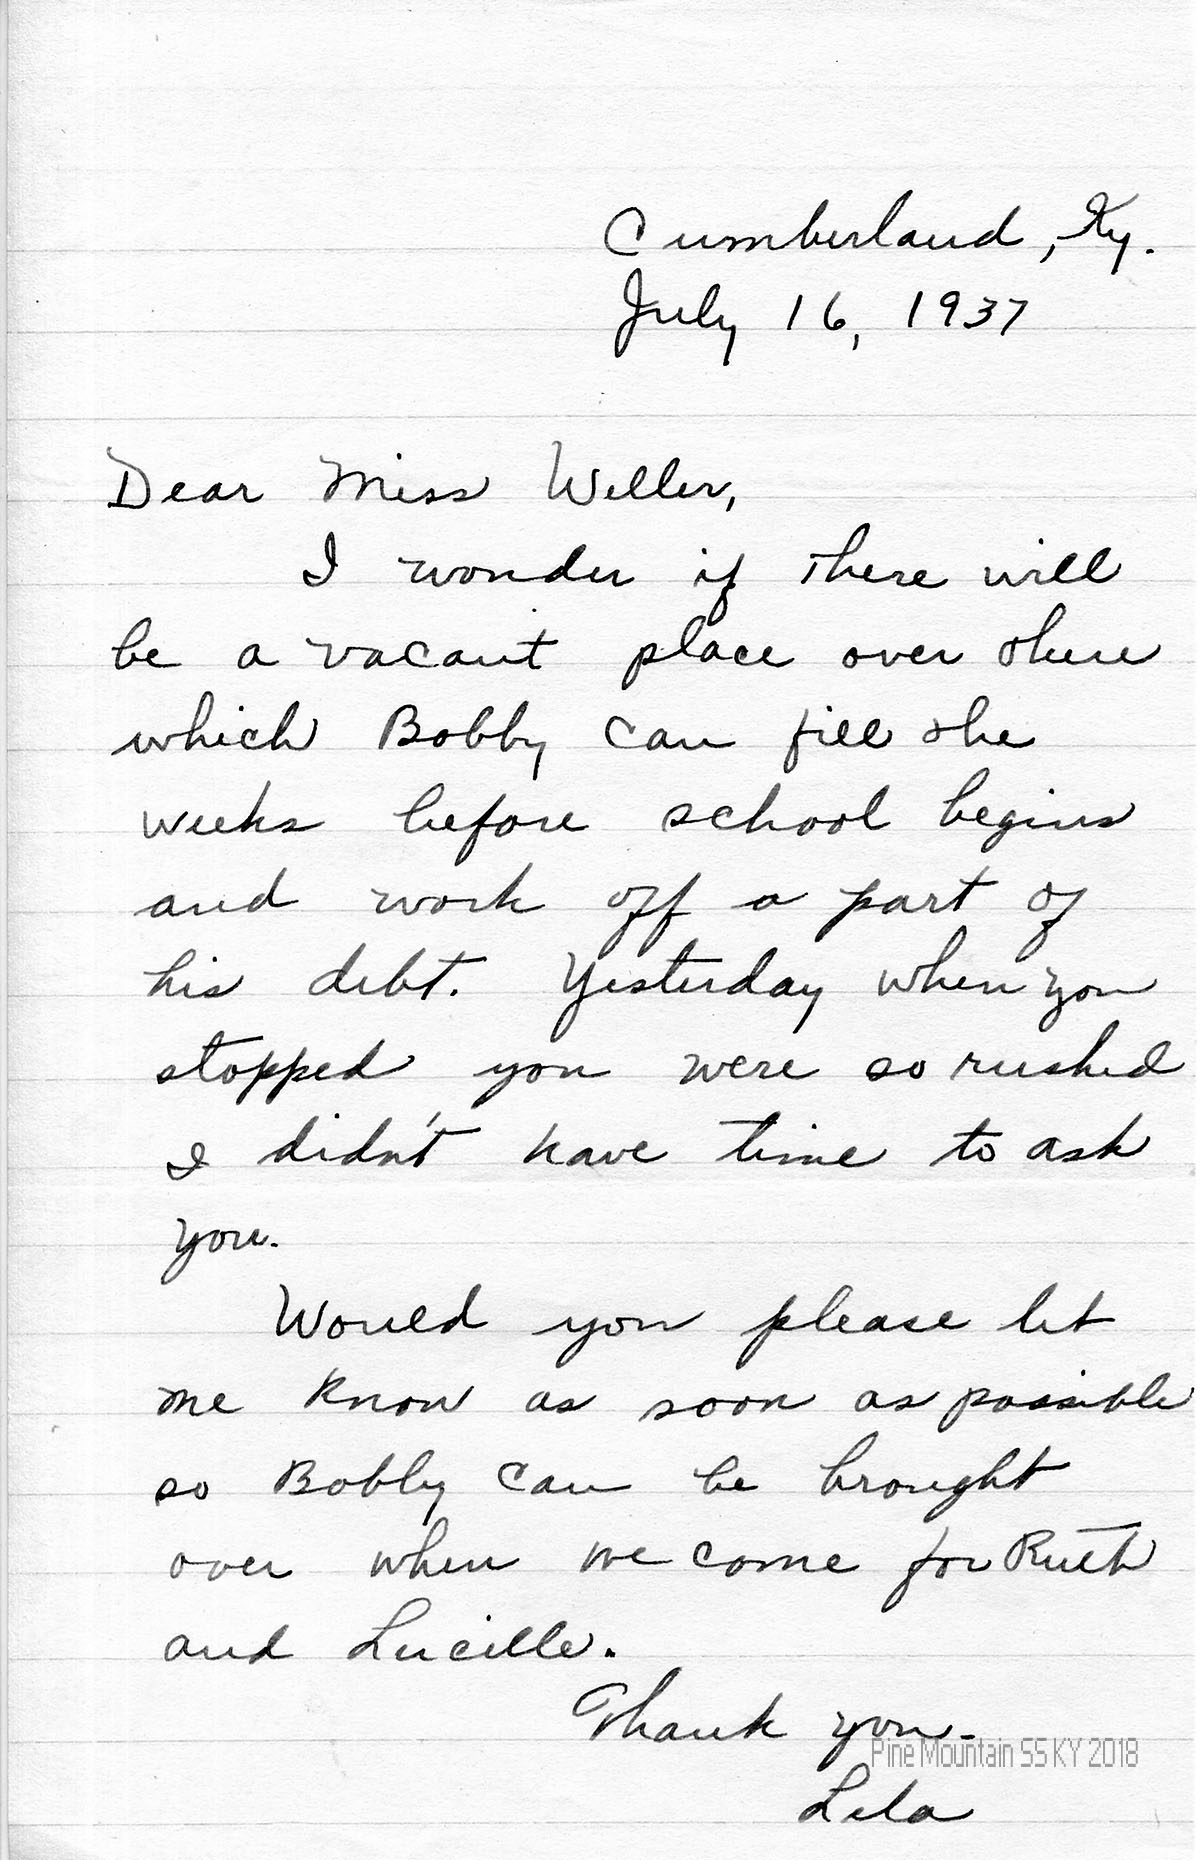 Cumberland, Ky.
July 16, 1937
Dear Miss Weller,
I wonder if there will
be a vacant place over there
which Bobby can fill the
weeks before school begins
and work off a part of
his debt. Yesterday when you
stopped you were so rushed
I didn't have time to ask
you.
Would you please let
me know as soon as possible
so Bobby can be brought
over when we come for Ruth
and Lucille.
Thank you.
Pine Mountain SS KY 2018
Lela